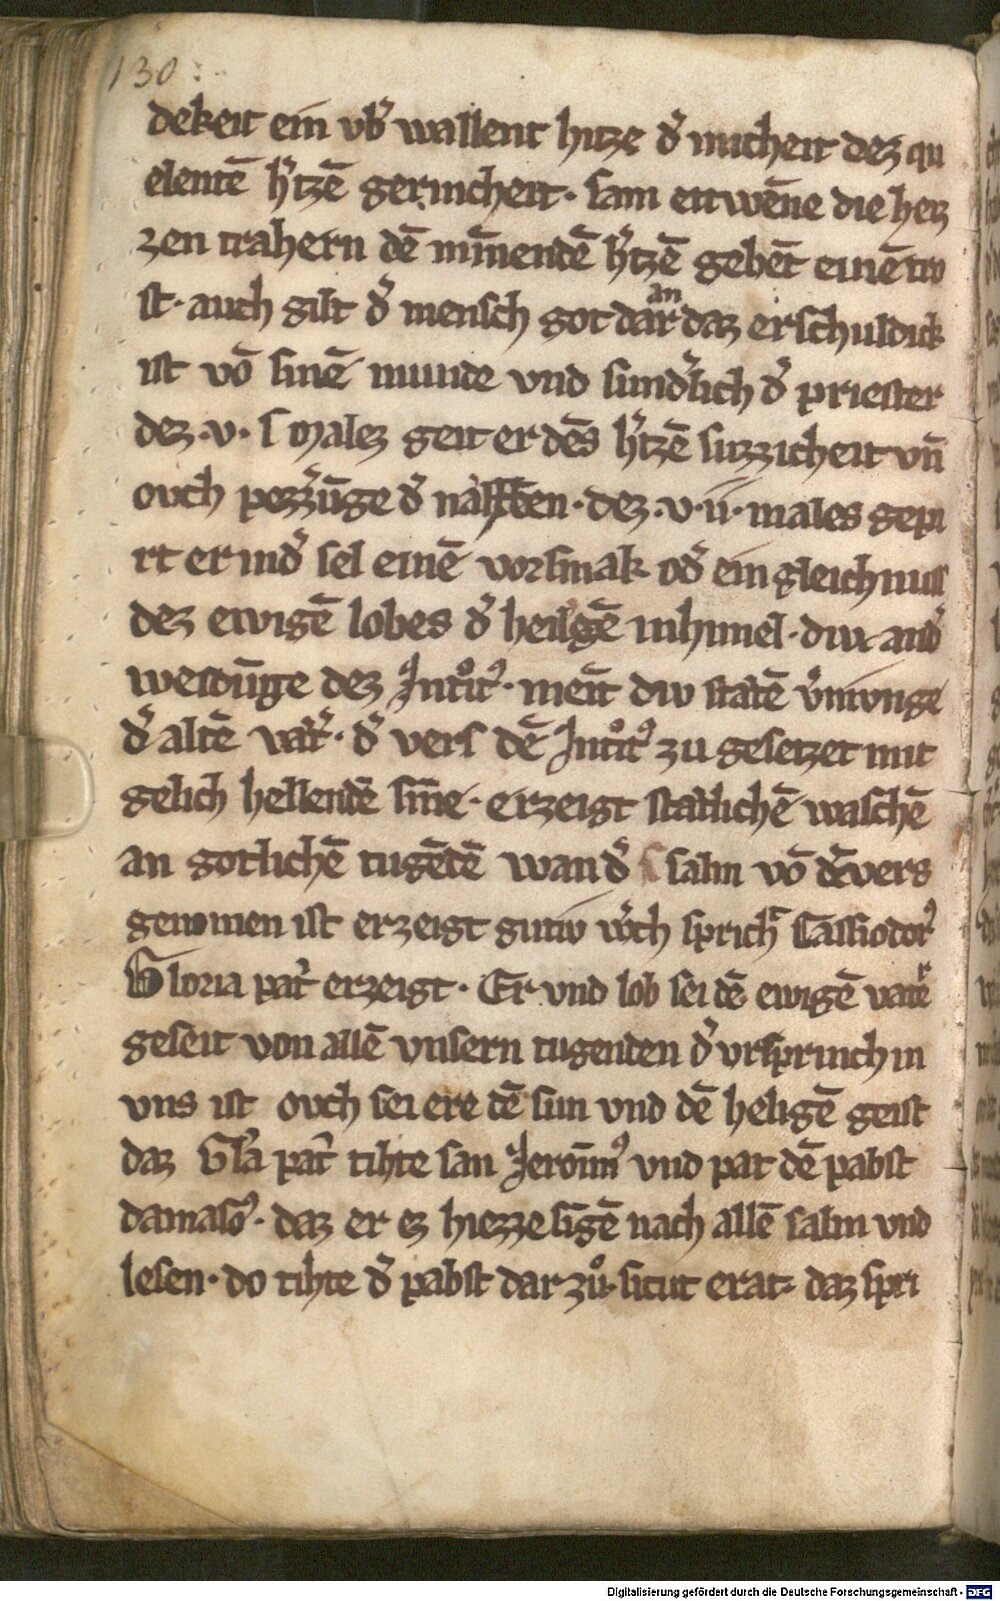 130
dekeit ein vb̓ wallent hitze d̓ inicheit dez qu
elentē h̓tzē gerincheit· sam ettwēne die hertz
zen trahern dē miñendē h̓tzē gebēt einē tro
st· auch gilt d̓ mensch got dar an daz er schuldick
ist vō sinē munde vnd sund̓lich d̓ priester
dez ·v· males geit er dēs h̓tzē suzzicheit vñ
ovch pezz̓ūge d̓ dez ·v·ii· males gepi
rt er ind̓ sel einē vorsmak od̓ ein gleichnuss
dez ewigē lobes d̓ heilgē inhimel· diu and̓
wedūge dez Intͦit᷒· meīt diu statē v̓niunge
d̓ altē vat̓· d̓ vers dē Intͦit᷒ zu gesetzet mit
gelich hellendē siñe· erzeigt statlichē waschē
an gotlichē tugētē wan d̓ salm vō dē vers
genomen ist erzeigt gutiv w̓ch sprich Cassiodor᷒
Gloria pat̓ erzeigt· Er vnd lob sei dē ewigē vatē
geseit von allē vnsern tugenden d̓ vrsprinch in
vns ist ovch sei ere dē sun vnd dē heligē geist
daz Gl̓a pat̓ tihte san Jeronīm᷒ vnd pat dē pabst
damasō᷒· daz er ez hiezze sīgē nach allē salm vnd
lesen· do tihte d̓ pabst dar zuͦ· sicut erat· daz spri
Digitalisierung gefördert durch die Deutsche Forschungsgemeinschaft - DFG